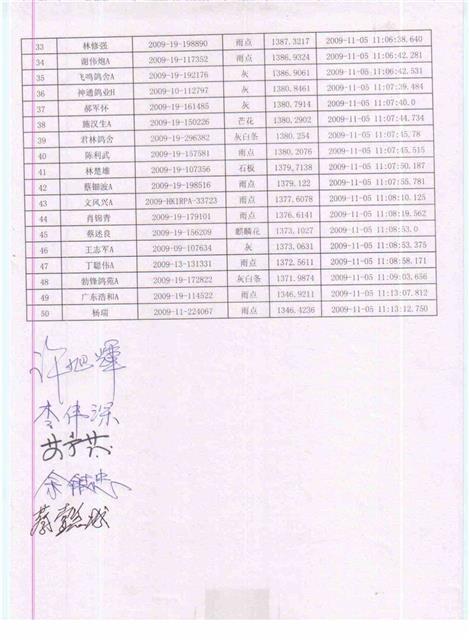 33 林修强 2009-19-198890 雨点 1387.3217 2009-11-05 11:06:38.640
34 谢伟炮A 2009-19-117352 雨点 1386.9324 2009-11-05 11:06:42.281
35 飞鸣鸽舍A 2009-19-192176 灰 1386.9061 2009-11-05 11:06:42.531
36 神通鸽业H 2009-10-112797 灰 1380.8461 2009-11-05 11:07:39.484
37 郝军怀 2009-19-161485 灰 1380.7914 2009-11-05 11:07:40.0
38 施汉生A 2009-19-150226 芒花 1380.2902 2009-11-05 11:07:44.734
39 君林鸽舍 2009-19-296382 灰白条 1380.254 2009-11-05 11:07:45.78
40 陈利武 2009-19-157581 雨点 1380.2076 2009-11-05 11:07:45.515
41 林楚雄 2009-19-107356 石板 1379.7138 2009-11-05 11:07:50.187
42 蔡钿波A 2009-19-198516 雨点 1379.122 2009-11-05 11:07:55.781
43 文风兴A 2009-HKIRPA-33723 雨点 1377.6078 2009-11-05 11:08:10.125
44 肖锦青 2009-19-179101 雨点 1376.6141 2009-11-05 11:08:19.562
45 蔡述良 2009-19-156209 麒麟花 1373.1027 2009-11-05 11:08:53.0
46 王志军A 2009-09-107634 灰 1373.0631 2009-11-05 11:08:53.375
47 丁聪伟A 2009-13-131331 雨点 1372.5611 2009-11-05 11:08:58.171
48 勃锋鸽苑A 2009-19-172822 灰白条 1371.9874 2009-11-05 11:09:03.656
49 广东浩和A 2009-19-114522 雨点 1346.9211 2009-11-05 11:13:07.812
50 杨瑞 2009-11-224067 雨点 1346.4236 2009-11-05 11:13:12.750
许旭辉
李伟深